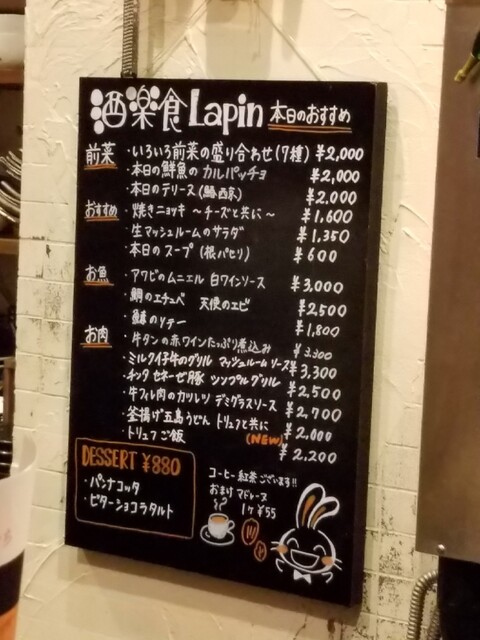 酒楽食 Lapin 本日のおすすめ
前菜 ・いろいろ前菜の盛り合わせ(7種) ¥2,000
・本日の鮮魚のカルパッチョ ¥2,000
・本日のテリーヌ ¥2,000
おすすめ ・焼きニョッキ 〜チーズと共に〜 ¥1,600
・生マッシュルームのサラダ ¥1,350
・本日のスープ(根パセリ) ¥600
お魚 ・アワビのムニエル 白ワインソース ¥3,000
・鯛のエチュベ 天使のエビ ¥2,500
のソテー ¥1,800
お肉 ・牛タンの赤ワインたっぷり煮込み ¥3,300
・ミルク仔牛のグリル マッシュルームソース ¥3,300
・チンタセネーゼ豚 シンプルグリル ¥2,500
・牛フィレ肉のカツレツ デミグラスソース ¥2,700
・釜揚げ五島うどん トリュフと共に (NEW) ¥2,000
・トリュフご飯 ¥2,200
DESSERT ¥880
・パンナコッタ
・ビターショコラタルト
コーヒー紅茶ございます!!
おまけ マドレーヌ
1ヶ ¥55